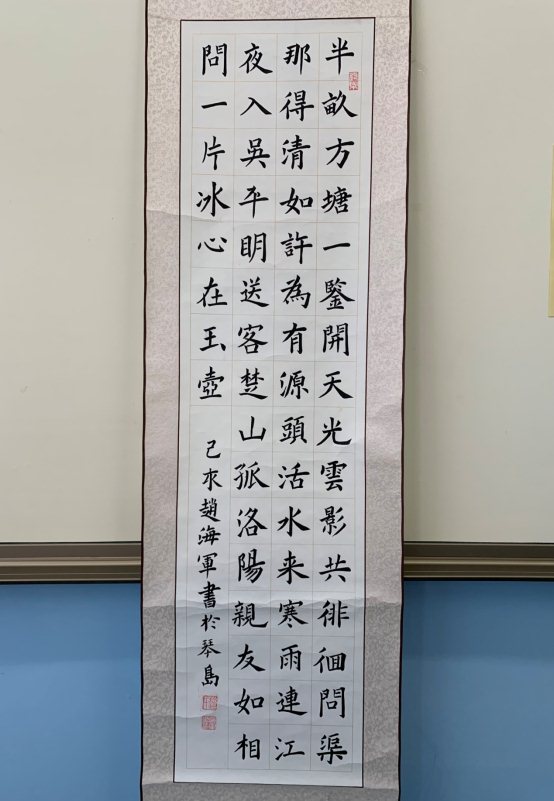 半畝方塘一鑒開天光雲影共徘徊問渠
那得清如許為有源頭活水来寒雨連江
夜入吳平明送客楚山孤洛陽親友如相
問一片冰心在玉壺
己未趙海軍書於琴島